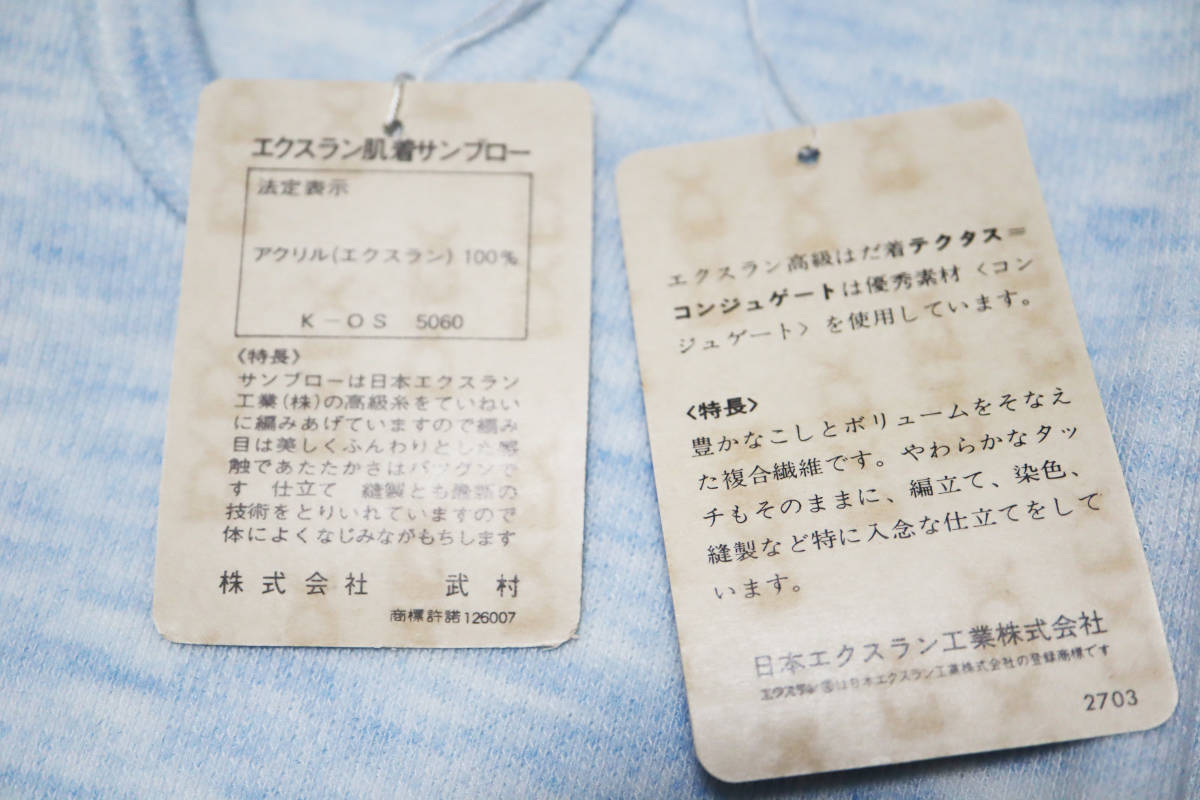 エクスラン肌着サンブロー
法定表示
アクリル(エクスラン) 100%
K-OS 5060
〈特長〉
サンブローは日本エクスラン
工業(株)の高級糸をていねい
に編みあげていますので編み
目は美しくふんわりとした感
触であたたかさはバツグンで
す 仕立て 縫製とも最新の
技術をとりいれていますので
体によくなじみながもちします
株式会社 武村
商標許諾126007
エクスラン高級はだ着テクタス=
コンジュゲートは優秀素材〈コン
ジュゲート〉を使用しています。
〈特長〉
豊かなこしとボリュームをそなえ
た複合繊維です。やわらかなタッ
チもそのままに、編立て、染色、
縫製など特に入念な仕立てをして
います。
日本エクスラン工業株式会社
エクスラン®は日本エクスラン工業株式会社の登録商標です
2703